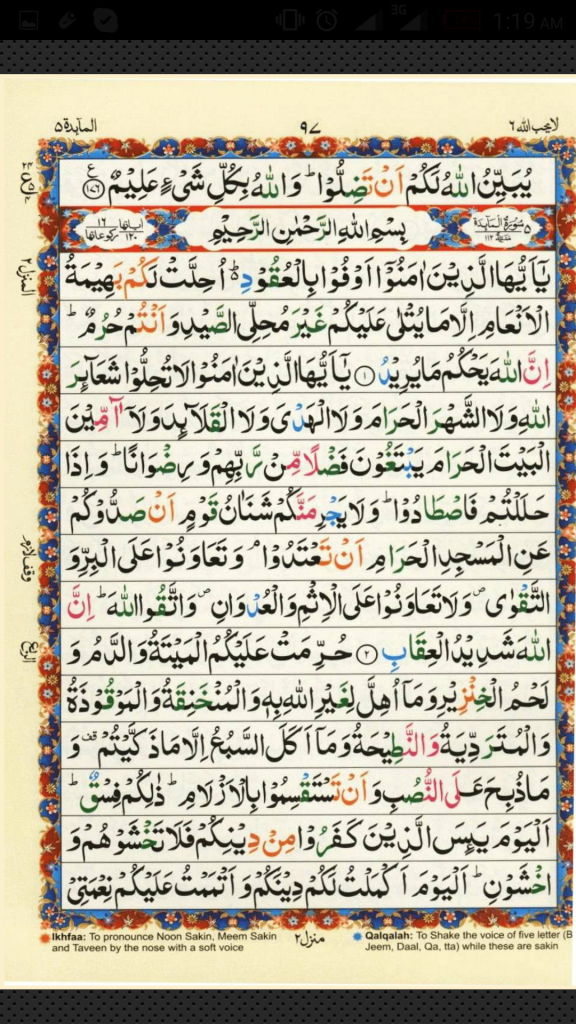 3G 1:19 AM
لايحب الله ٦ ٩٧ المآىدة ٥
يُبَيِّنُ اللّٰهُ لَكُمْ اَنْ تَضِلُّوْا ؕ وَاللّٰهُ بِكُلِّ شَیْءٍ عَلِيْمٌ ﴿۱۷۶﴾
ع
بِسْمِ اللّٰهِ الرَّحْمٰنِ الرَّحِيْمِ
المنزل ٢
يٰۤاَيُّهَا الَّذِيْنَ اٰمَنُوْۤا اَوْفُوْا بِالْعُقُوْدِ ؕ اُحِلَّتْ لَكُمْ بَهِيْمَةُ
الْاَنْعَامِ اِلَّا مَا يُتْلٰى عَلَيْكُمْ غَيْرَ مُحِلِّی الصَّيْدِ وَاَنْتُمْ حُرُمٌ ؕ
اِنَّ اللّٰهَ يَحْكُمُ مَا يُرِيْدُ ﴿۱﴾ يٰۤاَيُّهَا الَّذِيْنَ اٰمَنُوْا لَا تُحِلُّوْا شَعَآئِرَ
اللّٰهِ وَلَا الشَّهْرَ الْحَرَامَ وَلَا الْهَدْیَ وَلَا الْقَلَآئِدَ وَلَاۤ آٰمِّيْنَ
الْبَيْتَ الْحَرَامَ يَبْتَغُوْنَ فَضْلًا مِّنْ رَّبِّهِمْ وَرِضْوَانًا ؕ وَاِذَا
حَلَلْتُمْ فَاصْطَادُوْا ؕ وَلَا يَجْرِمَنَّكُمْ شَنَاٰنُ قَوْمٍ اَنْ صَدُّوْكُمْ
عَنِ الْمَسْجِدِ الْحَرَامِ اَنْ تَعْتَدُوْا ۘ وَتَعَاوَنُوْا عَلَى الْبِرِّ وَ
وقف لازم
التَّقْوٰى ۪ وَلَا تَعَاوَنُوْا عَلَى الْاِثْمِ وَالْعُدْوَانِ ۪ وَاتَّقُوا اللّٰهَ ؕ اِنَّ
اللّٰهَ شَدِيْدُ الْعِقَابِ ﴿۲﴾ حُرِّمَتْ عَلَيْكُمُ الْمَيْتَةُ وَالدَّمُ وَ
لَحْمُ الْخِنْزِيْرِ وَمَاۤ اُهِلَّ لِغَيْرِ اللّٰهِ بِهٖ وَالْمُنْخَنِقَةُ وَالْمَوْقُوْذَةُ
وَالْمُتَرَدِّيَةُ وَالنَّطِيْحَةُ وَمَاۤ اَكَلَ السَّبُعُ اِلَّا مَا ذَكَّيْتُمْ قف وَ
مَا ذُبِحَ عَلَى النُّصُبِ وَاَنْ تَسْتَقْسِمُوْا بِالْاَزْلَامِ ؕ ذٰلِكُمْ فِسْقٌ ؕ
اَلْيَوْمَ يَئِسَ الَّذِيْنَ كَفَرُوْا مِنْ دِيْنِكُمْ فَلَا تَخْشَوْهُمْ وَ
اخْشَوْنِ ؕ اَلْيَوْمَ اَكْمَلْتُ لَكُمْ دِيْنَكُمْ وَاَتْمَمْتُ عَلَيْكُمْ نِعْمَتِیْ
Ikhfaa: To pronounce Noon Sakin, Meem Sakin
and Taveen by the nose with a soft voice
منزل ٢
Qalqalah: To Shake the voice of five letter (B
Jeem, Daal, Qa, tta) while these are sakin